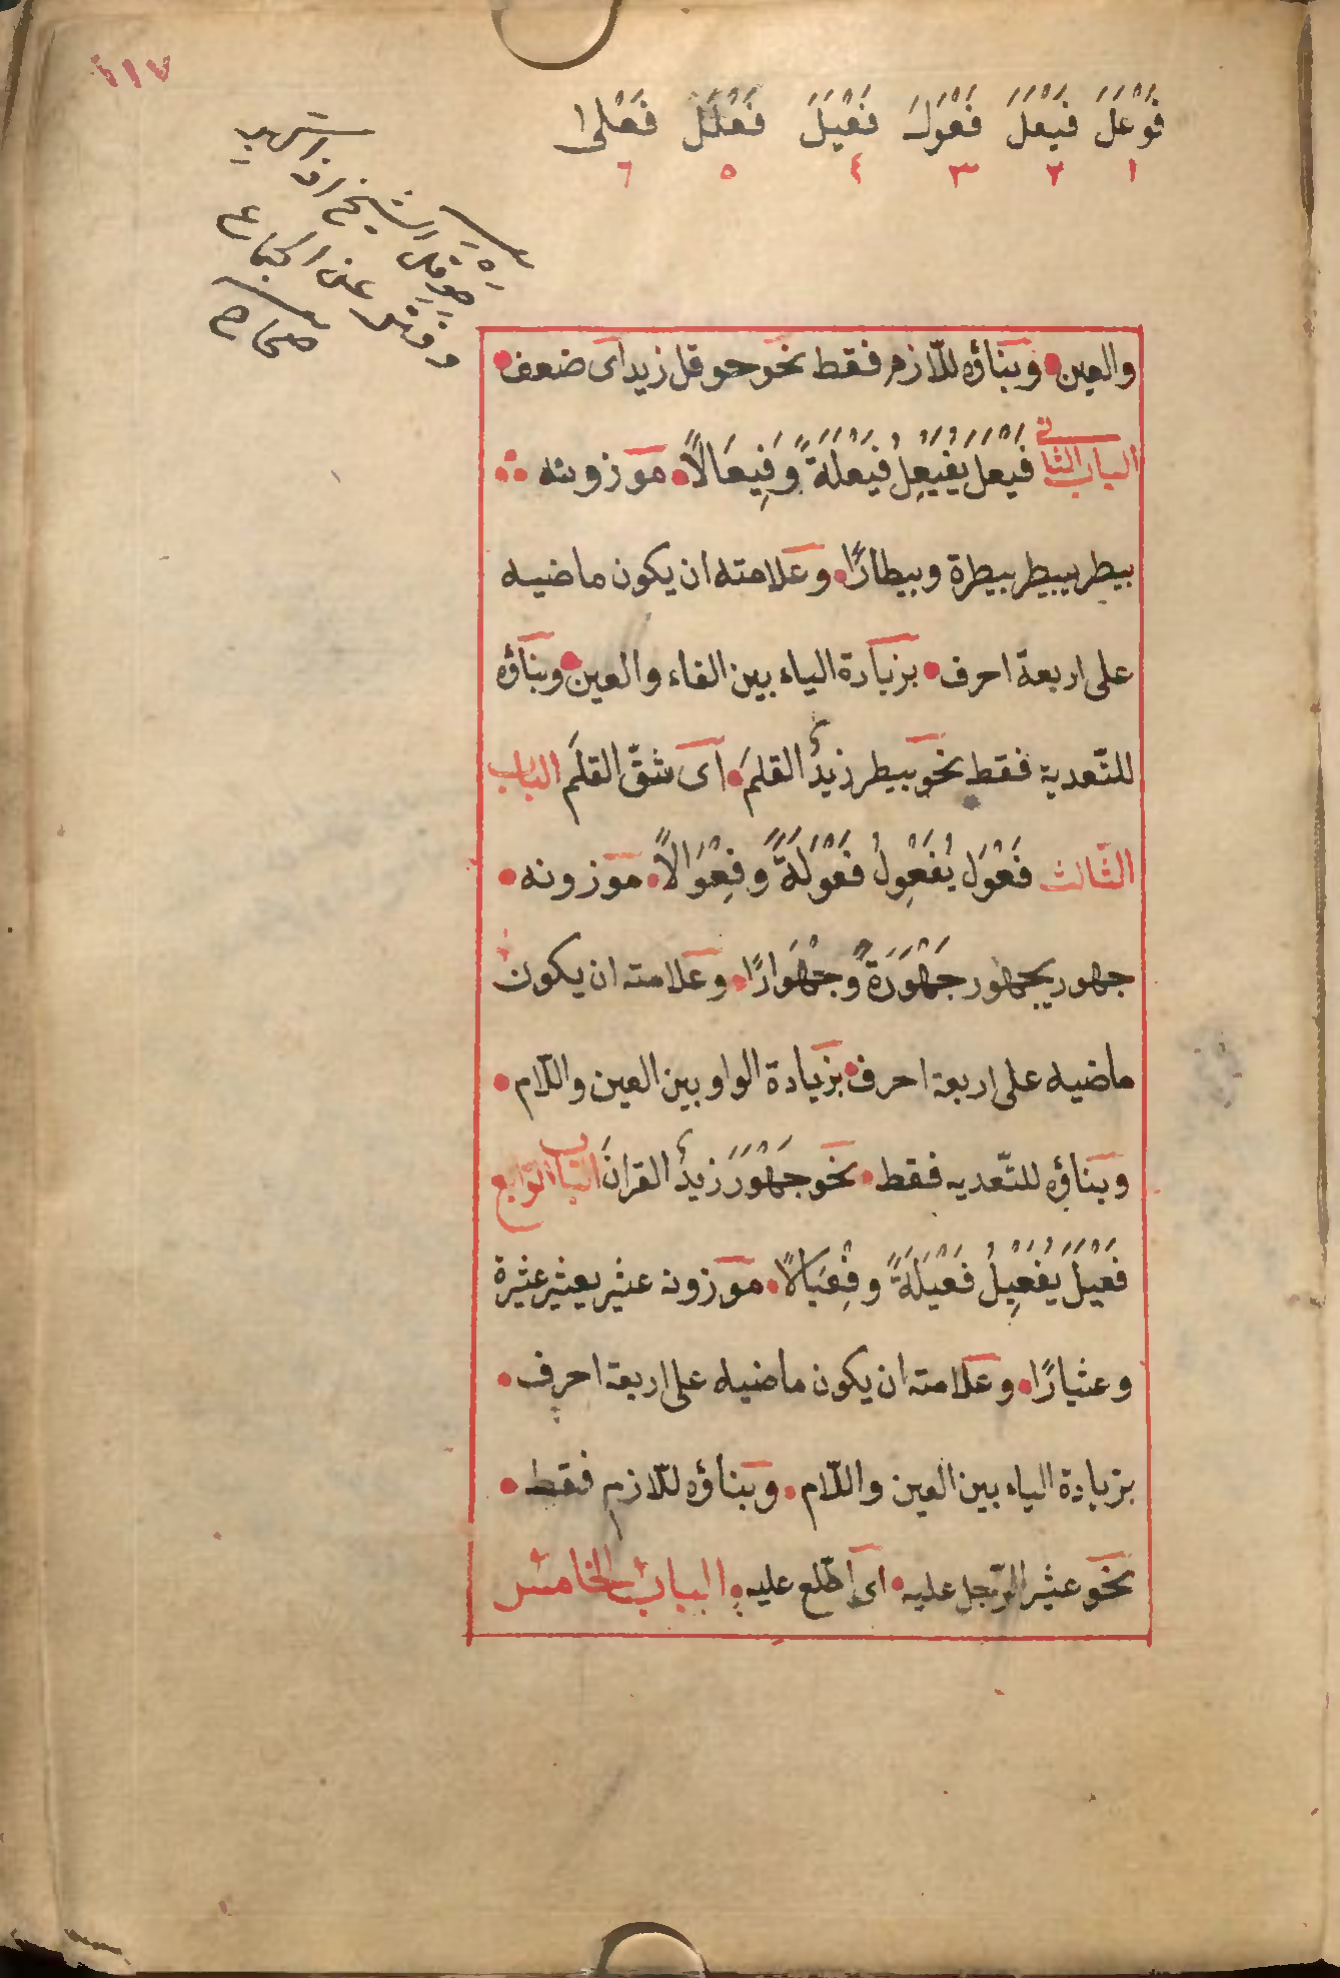 ١١٧
فَوْعَلَ فَيْعَلَ فَعْوَلَ فَعْيَلَ فَعْلَلَ فَعْلى
١ ٢ ٣ ٤ ٥ ٦
حوقل الشيخ اذا
وفتر عن الجماع
صحاح
والعين وبناؤه للّازم فقط نحو حوقل زيد اى ضعف
الباب الثانى فَيْعَلَ يُفَيْعِلُ فَيْعَلَةً وَفِيعَالًا موزونه
بيطر يبيطر بيطرة وبيطارًا وعلامته ان يكون ماضيه
على اربعة احرف بزيادة الياء بين الفاء والعين وبناؤه
للتّعدية فقط نحو بيطر زيدٌ القلمَ اى شقّ القلمَ الباب
الثّالث فَعْوَلَ يُفَعْوِلُ فَعْوَلَةً وَفِعْوَالًا موزونه
جهور يجهور جَهْوَرَةً وجِهْوَارًا وعلامته ان يكون
ماضيه على اربعة احرف بزيادة الواو بين العين واللّام
وبناؤه للتّعديه فقط نحو جَهْوَرَ زيدٌ القرانَ الباب الرّابع
فَعْيَلَ يُفَعْيِلُ فَعْيَلَةً وفِعْيَالًا موزونه عثير يعثير عثيرة
وعثيارًا وعلامته ان يكون ماضيه على اربعة احرف
بزيادة الياء بين العين واللّام وبناؤه للّازم فقط
نحو عثير الرّجل عليه اى اطّلع عليه الباب الخامس